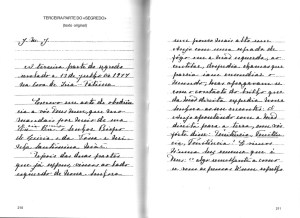 TERCEIRA PARTE DO «SEGREDO»
(texto original)
J. M. J.
A terceira parte do segredo
revelado a 13 de julho de 1917
na Cova da Iria-Fátima.
Escrevo em acto de obediencia
a vós Deus meu, que mo
mandais por meio de sua
Ex.cia Rev.ma o Senhor Bispo
de Leiria e da Vossa e minha
Santissima Mãe.
Depois das duas partes
que já expus, vimos ao lado
esquerdo de Nossa Senhora
um pouco mais alto um
Anjo com uma espada de
fôgo em a mão esquerda; ao
centilar, despedia chamas que
parecia iam encendiar o
mundo; mas apagavam-se
com o contacto do brilho que
da mão direita expedia Nossa
Senhora ao seu encontro: O
Anjo apontando com a mão
direita para a terra, com voz
forte disse: Penitência, Penitência,
Penitência! E vimos
n'uma luz emensa que é
Deus: "algo semelhante a como
se vêem as pessoas n'um espelho
210
211